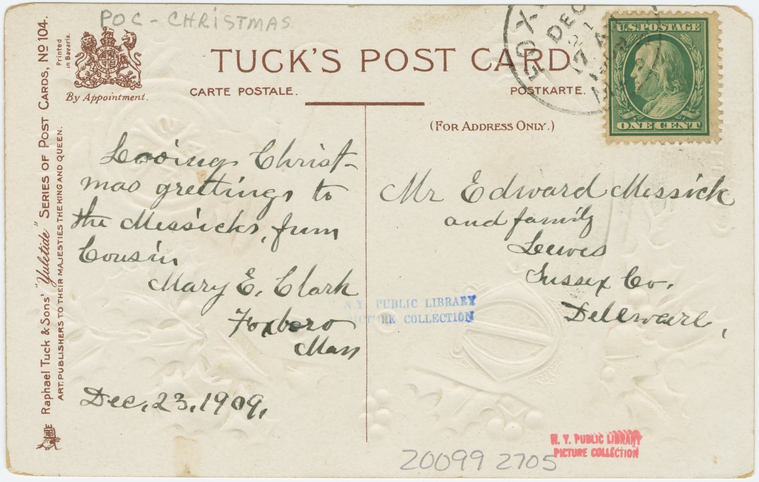 POC - CHRISTMAS
Printed
in Bavaria.
By Appointment.
TUCK'S POST CARD
CARTE POSTALE.
POSTKARTE.
(FOR ADDRESS ONLY.)
U.S. POSTAGE
ONE CENT
DEC
Raphael Tuck & Sons' "Yuletide" SERIES OF POST CARDS, No 104.
ART PUBLISHERS TO THEIR MAJESTIES THE KING AND QUEEN.
Loving Christ-
mas greetings to
the Messicks, from
Cousin
Mary E. Clark
Foxboro
Mass
Dec. 23, 1909,
Mr Edward Messick
and family
Lewes
Sussex Co.
Deleware,
N.Y. PUBLIC LIBRARY
PICTURE COLLECTION
N. Y. PUBLIC LIBRARY
PICTURE COLLECTION
20099 2705